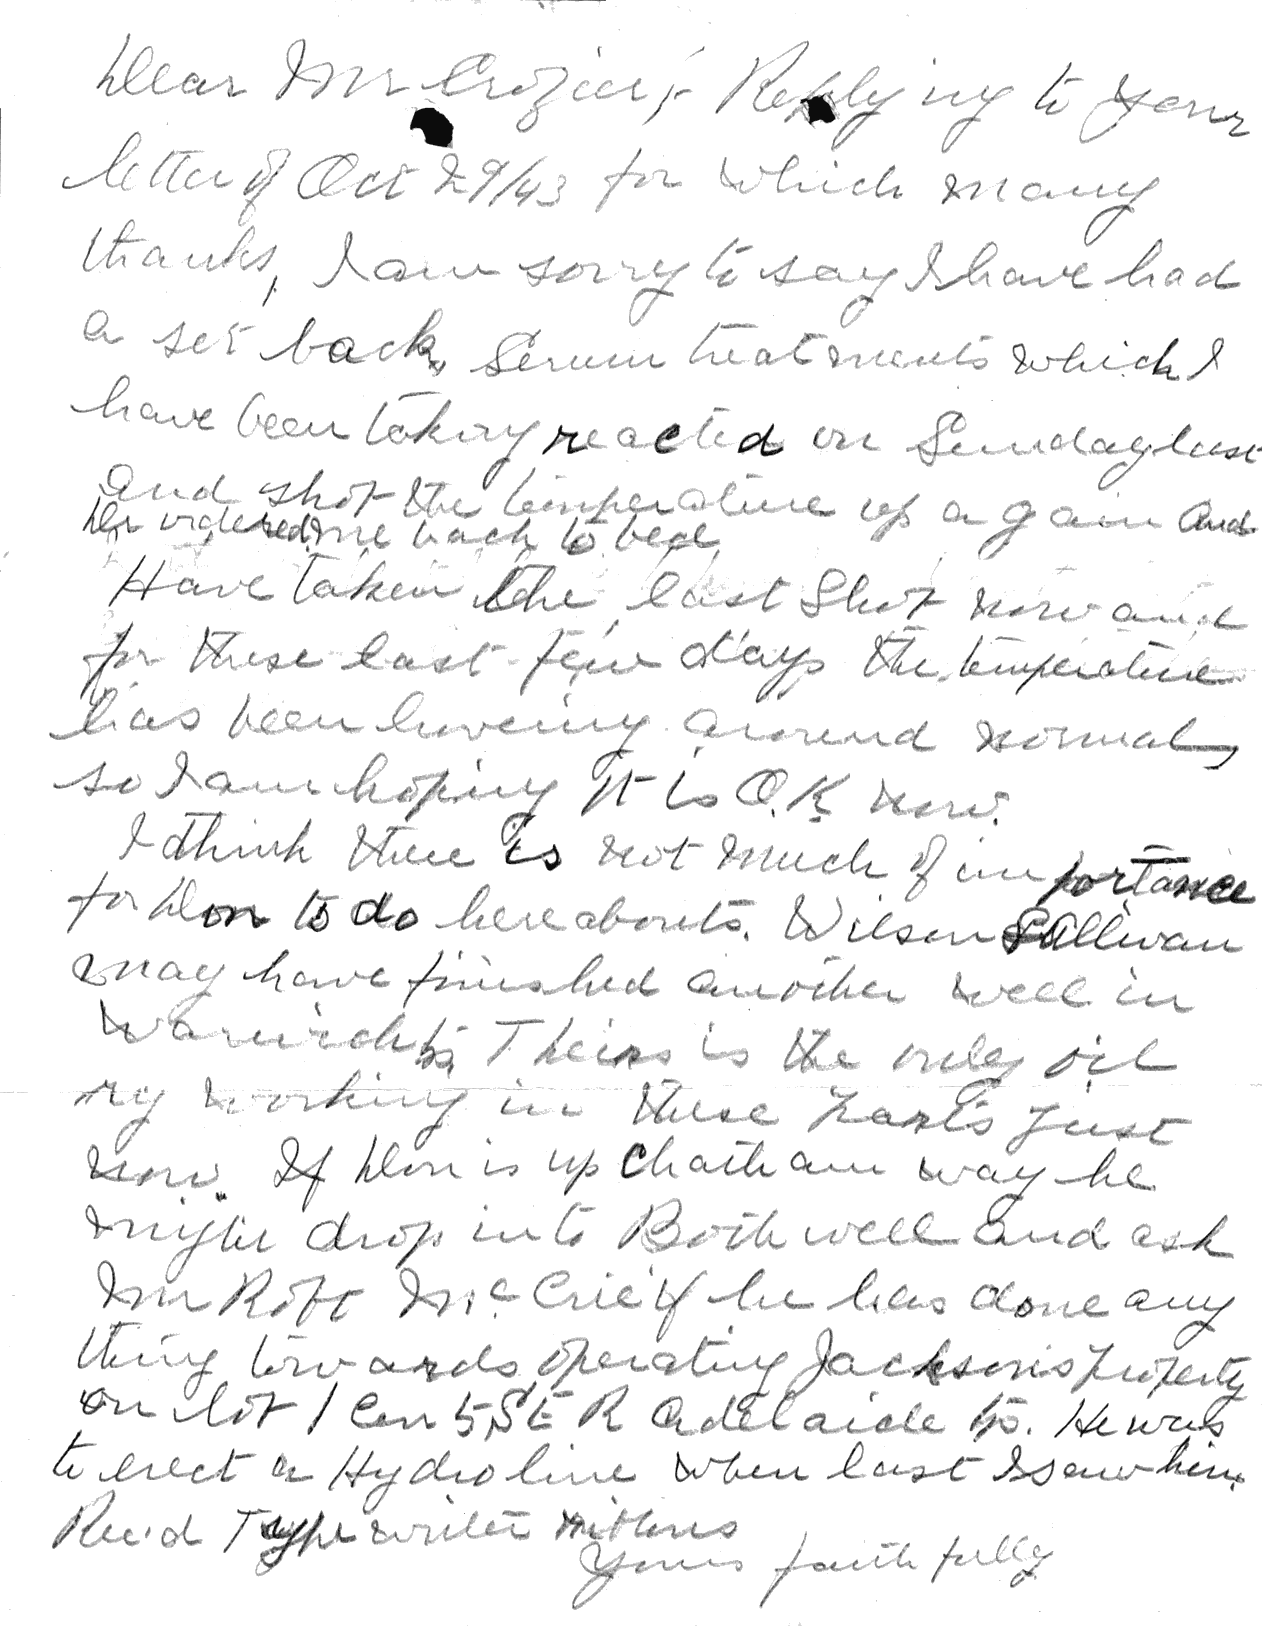 Dear Mr Crozier;- Replying to your
letter of Oct 29/43 for which many
thanks, I am sorry to say I have had
a set back, Serum treatments which I
have been taking reacted on Sunday last
and shot the temperature up again and
Dr ordered me back to bed
Have taken the last Shot now and
for these last few days the temperature
has been hovering around normal,
so I am hoping it is O.K now.
I think there is not much of importance
for Don to do hereabouts. Wilson Sullivan
may have finished another well in
Warwick tp. Theirs is the only oil
rig working in these parts just
now. If Don is up Chatham way he
might drop into Bothwell and ask
Mr Robt McCrie if he has done any
thing towards operating Jackson's property
on lot 1 Con 5, S E R Adelaide tp. He was
to erect a Hydro line when last I saw him.
Rec'd Typewriter ribbons
Yours faithfully